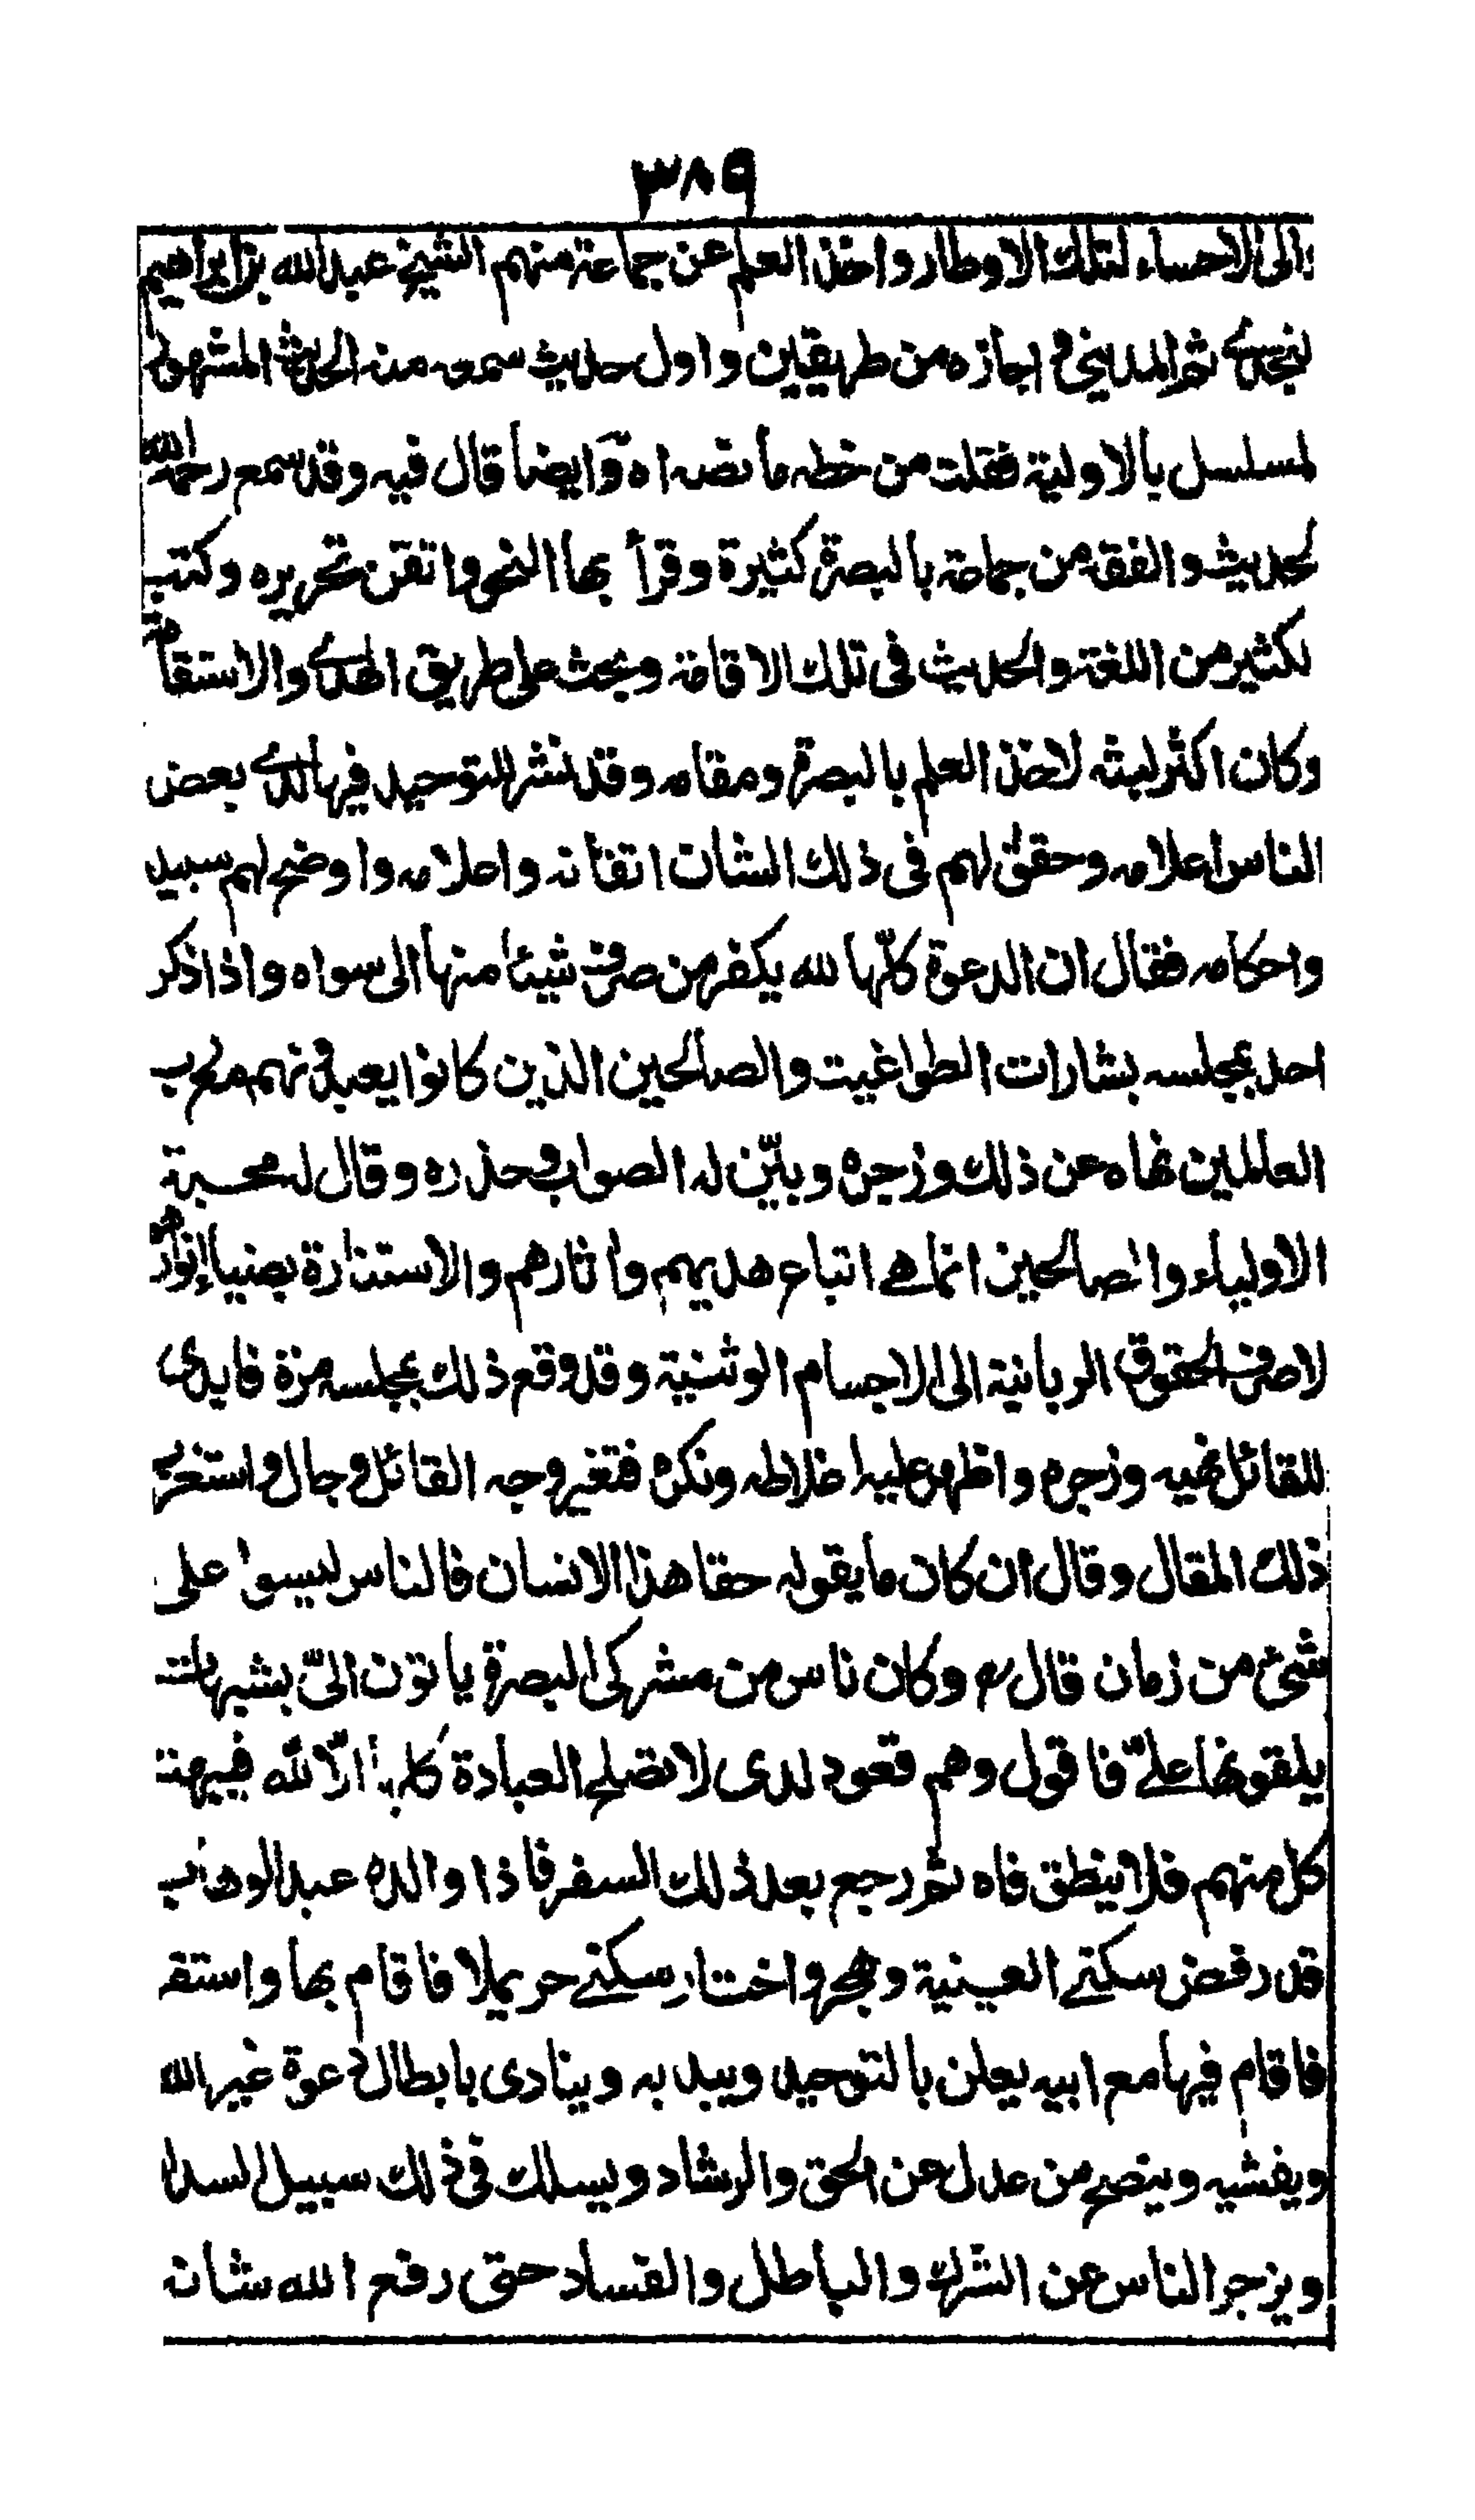 ٣٨٩
الى الاحساء لتلك الاوطار واخذ العلم عن جماعة منهم الشيخ عبدالله بن ابراهيم
نجدى ثم المدينى واجازه من طريقين واول حديث سمعه منه الحديث المشهور
لمسلسل بالاولية فنقلت من خطه ما نصه اه وايضا قال فيه وقد سمع رحمه الله
لحديث والفقه من جماعة بالبصرة كثيرة وقرأ بها النحو واتقن تحريره وكتب
لكثير من اللغة والحديث فى تلك الاقامة وبحث على طريق الهدى والاستقامة
وكان اكثر لبثه لاخذ العلم بالبصرة ومقامه وقد نشر للتوحيد فيها لدى بعض
الناس اعلامه وحقق لهم فى ذلك الشان اتقانه واعلامه واوضح لهم سبيله
واحكامه فقال ان الدعوة كلّها لله يكفر من صرف شيئا منها الى سواه واذا ذكر
احد بمجلسه بشارات الطواغيت والصالحين الذين كانوا يعبدونهم مع رب
العالمين نهاه عن ذلك وزجره وبيّن له الصواب وحذره وقال له محبة
الاولياء والصالحين انما هى اتباع هديهم واثارهم والاستنارة بضياء انوارهم
لا صرف الحقوق الربانية الى الاجسام الوثنية وقد وقع ذلك بمجلسه مرة فابدى
للقائل نهيه وزجره واظهر عليه اغلاطه ونكره فتغير وجه القائل وجال واستغرب
ذلك المقال وقال ان كان ما يقوله حقا هذا الانسان فالناس ليسوا على
شئ من زمان قال وكان ناس من مشركى البصرة ياتون الىّ بشبهات
يلقونها علىّ فاقول وهم قعود لدى لا تصلح العبادة كلها الّا لله فيبهت
كل منهم فلا ينطق فاه ثم رجع بعد ذلك السفر فاذا والده عبد الوهاب
قد رفض سكنى العيينة وهجرها واختار سكنى حريملا فاقام بها واستقر
فاقام فيها مع ابيه يعلن بالتوحيد ويبديه وينادى بابطال دعوة غير الله
ويفشيه وينصح من عدل عن الحق والرشاد ويسلك فى ذلك سبيل السداد
ويزجر الناس عن الشرك والباطل والفساد حتى رفع الله شانه